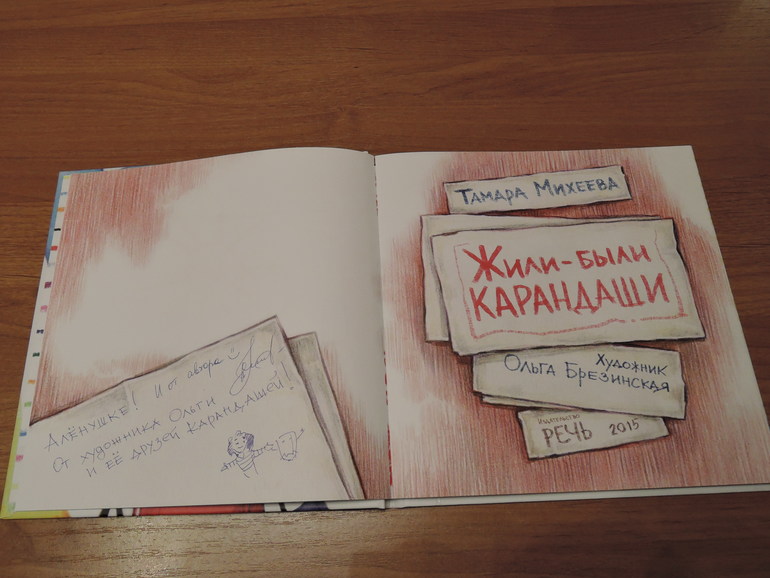 Алёнушке! И от автора
От художника Ольги
и её друзей Карандашей!
Тамара Михеева
Жили-были
карандаши
Художник
Ольга Брезинская
Издательство
Речь 2015